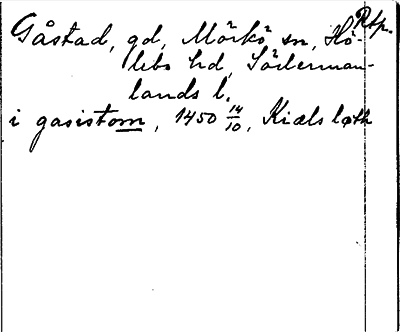 Rtp.
Gåstad, gd, Mörkö sn, Hö-
lebo hd, Söderman-
lands l.
i gasistom, 1450 14/10, Kiæls løth